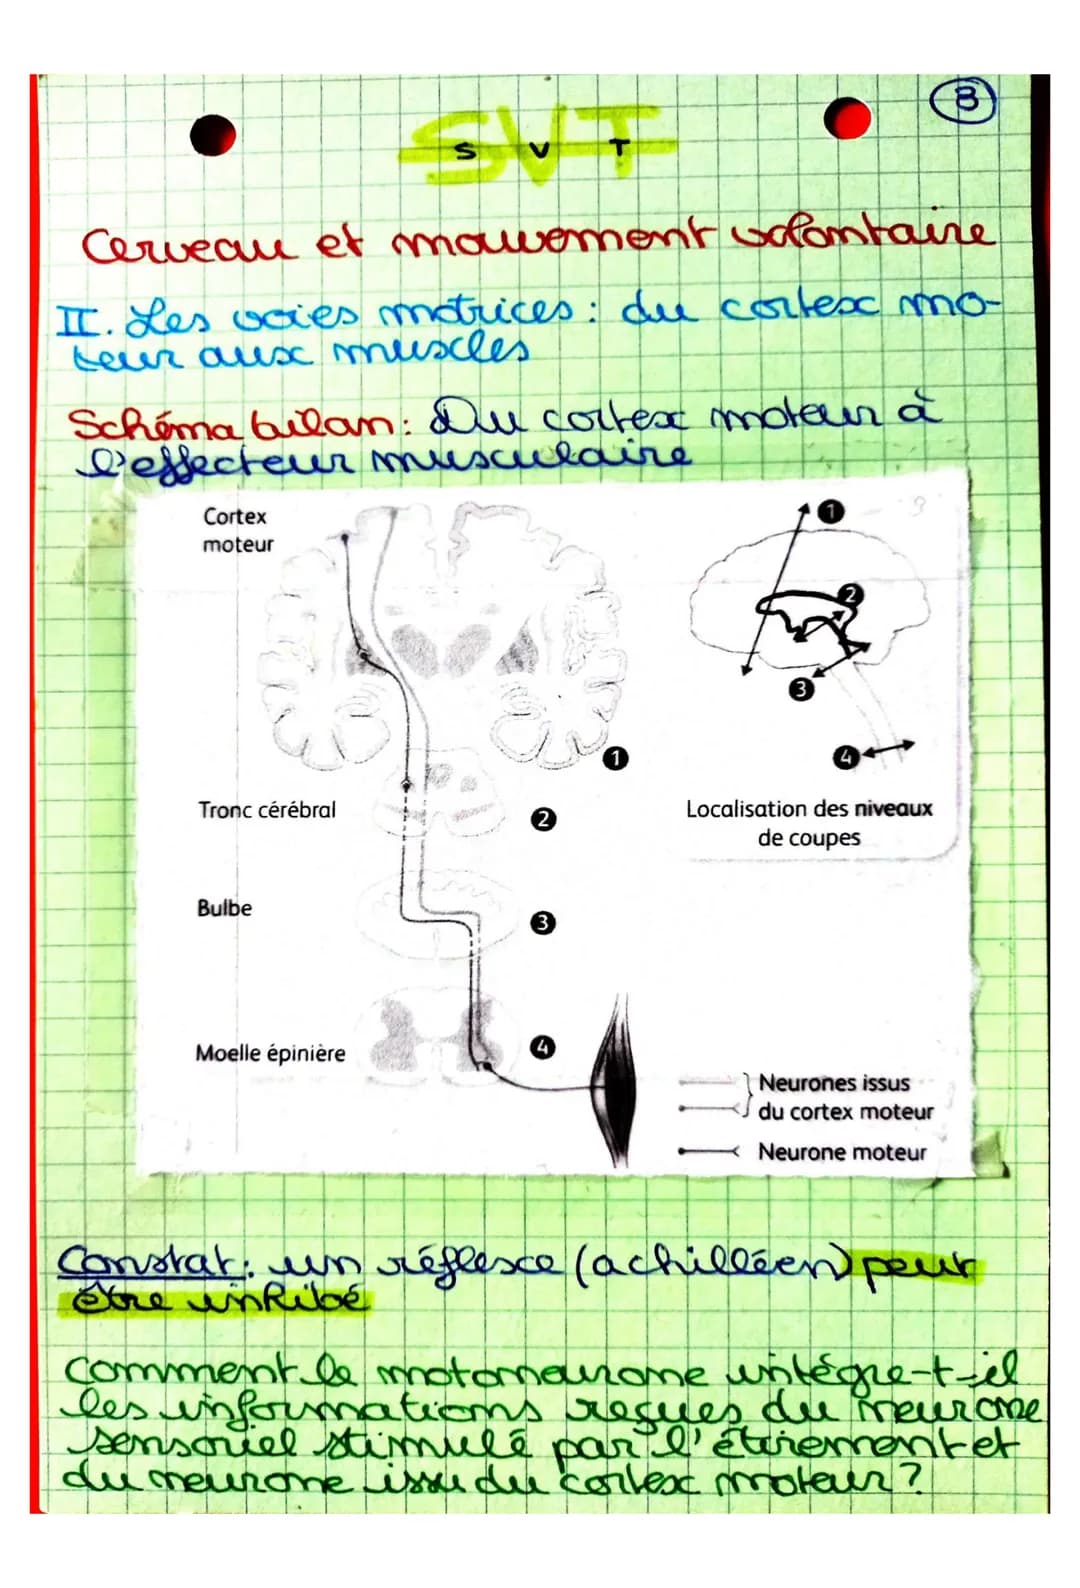 3
SVT
S V T
Cerveau et mouvement volontaire
II. Les voies motrices : du cortex mo-
teur aux muscles
Schéma bilan : Du cortex moteur à
l'effecteur musculaire
Cortex
moteur
1
2
3
4
Localisation des niveaux
de coupes
1
Tronc cérébral
2
Bulbe
3
Moelle épinière
4
Neurones issus
du cortex moteur
Neurone moteur
Constat : un réflexe (achilléen) peut
être inhibé
Comment le motoneurone intégre-t-il
les informations reçues du neurone
sensoriel stimulé par l'étirement et
du neurone issu du cortex moteur ?